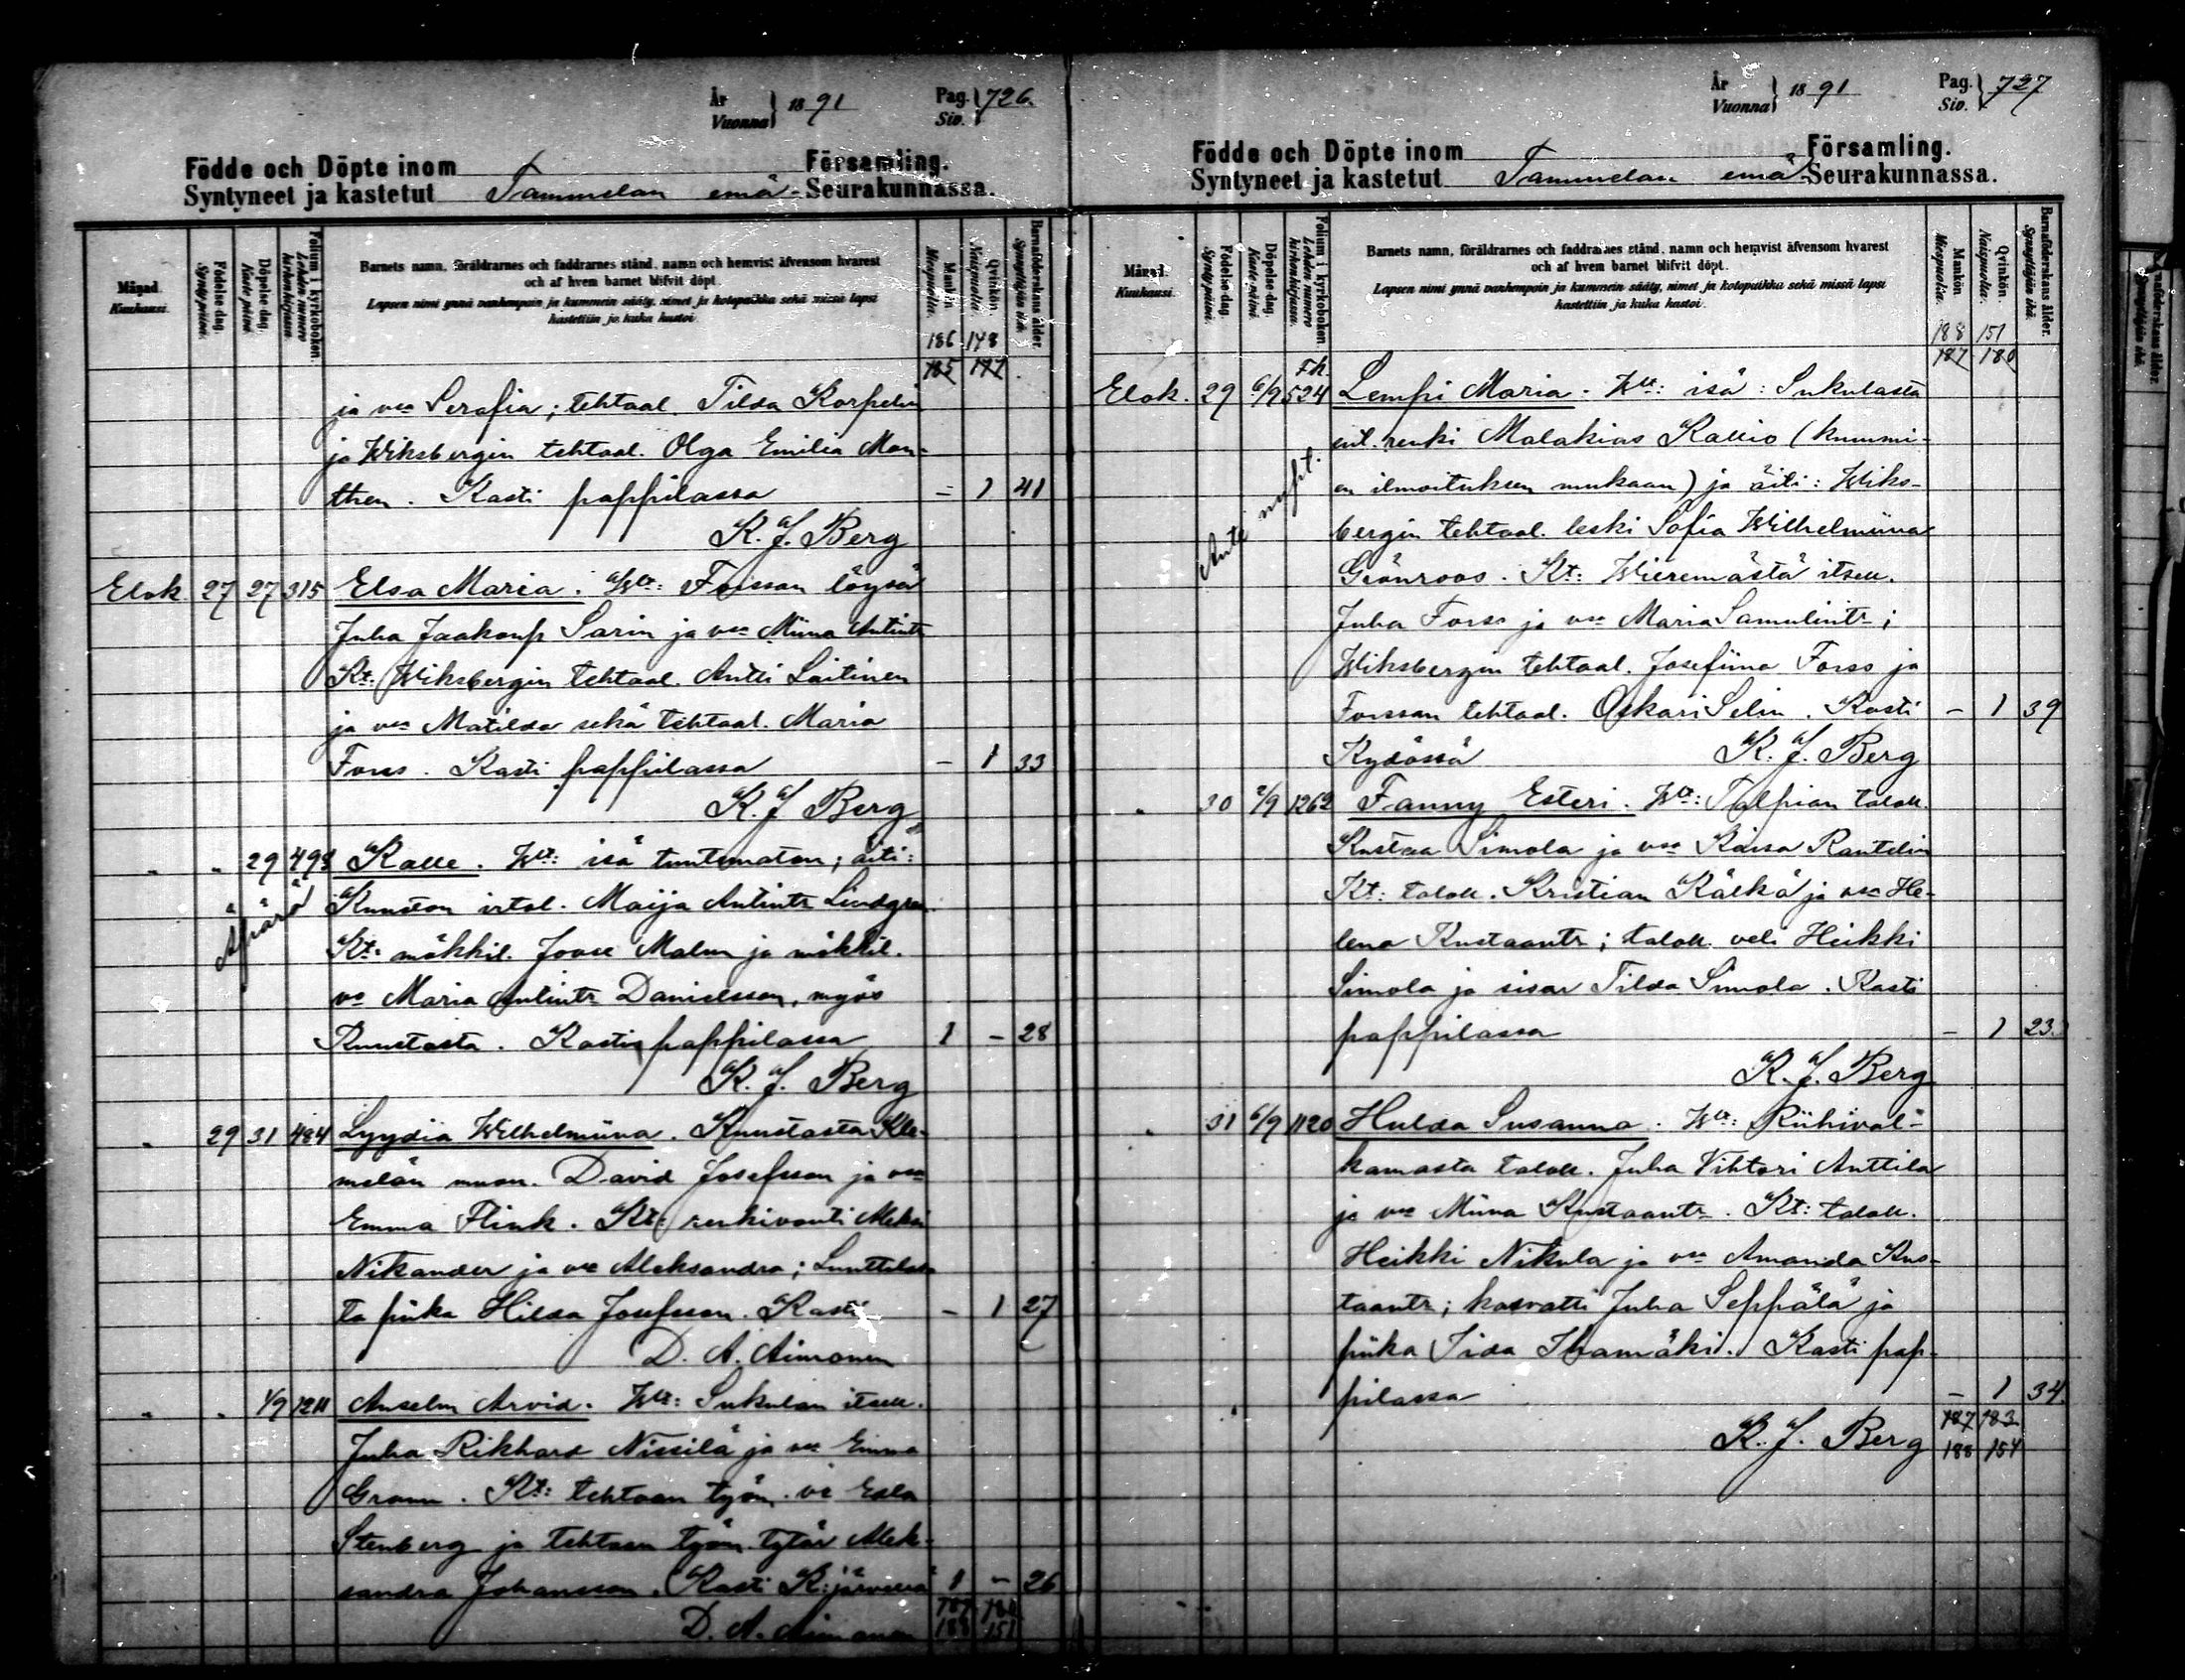 År Vuonna } 1891 Pag. Siv. } 726.
Födde och Döpte inom Församling.
Syntyneet ja kastetut Tammelan emä- Seurakunnassa.
Månad. Kuukausi.
Födelse dag. Synty päivä.
Döpelse dag. Kaste päivä.
Folium i kyrkoboken. Lehden numero kirkonkirjassa.
Barnets namn, föräldrarnes och faddrarnes stånd, namn och hemvist äfvensom hvarest
och af hvem barnet blifvit döpt.
Lapsen nimi ynnä vanhempain ja kummein sääty, nimet ja kotopaikka sekä missä lapsi
kastettiin ja kuka kastoi.
Mankön. Miespuolia.
Qvinkön. Naispuolia.
Barnaföderskans ålder. Synnyttäjän ikä.
186 148
185 177
ja vmo Serafia; tehtaal. Tilda Korpelin
ja Wiksbergin tehtaal. Olga Emilia Man-
then. Kasti pappilassa - 1 41
K. J. Berg
Elok. 27 27 315 Elsa Maria. Wmt: Forssan löysä
Juha Jaakonp. Sarin ja vmo Miina Antintr
Kt: Wiksbergin tehtaal. Antti Laitinen
ja vmo Matilda sekä tehtaal. Maria
Forss. Kasti pappilassa - 1 33
K. J. Berg
" " 29 498 Kalle. Wmt: isä tuntematon; äiti:
Äpärä
Kuuston irtol. Maija Antintr Lindgren.
Kt: mökkil. Joose Malm ja mökkil.
vo Maria Antintr Danielsson, myös
Kuustosta. Kasti pappilassa 1 - 28
K. J. Berg
" 29 31 484 Lyydia Wilhelmiina. Kuustosta Kle-
melän muon. David Josefsson ja vmo
Emma Flink. Kt: renkivouti Aleksi
Nikander ja vmo Aleksandra; Lunttilas-
ta piika Hilda Josefsson. Kasti - 1 27
D. A. Aimonen
" " 1/9 1211 Anselm Arvid. Wmt: Sukulan itsell.
Juha Rikhard Nissilä ja vmo Emma
Gronn. Kt: tehtaan työm. vo Edla
Stenberg ja tehtaan työm. tytär Alek-
sandra Johansson. Kasti K:järvessä 1 - 26
D. A. Aimonen
187 180
188 151
År Vuonna } 1891 Pag. Siv. } 727
Födde och Döpte inom Församling.
Syntyneet ja kastetut Tammelan emä- Seurakunnassa.
Månad. Kuukausi.
Födelse dag. Synty päivä.
Döpelse dag. Kaste päivä.
Folium i kyrkoboken. Lehden numero kirkonkirjassa.
Barnets namn, föräldrarnes och faddrarnes stånd, namn och hemvist äfvensom hvarest
och af hvem barnet blifvit döpt.
Lapsen nimi ynnä vanhempain ja kummein sääty, nimet ja kotopaikka sekä missä lapsi
kastettiin ja kuka kastoi.
Mankön. Miespuolia.
Qvinkön. Naispuolia.
Barnaföderskans ålder. Synnyttäjän ikä.
188 151
187 180
Elok. 29 6/9 Fh. 524 Lempi Maria. Wmt: isä: Sukulasta
ent. renki Malakias Kallio (kummi-
en ilmoituksen mukaan) ja äiti: Wiks-
bergin tehtaal. leski Sofia Wilhelmiina
Grönroos. Kt: Wieremästä itsell.
Juha Forss ja vmo Maria Samulintr;
Wiksbergin tehtaal. Josefiina Forss ja
Forssan tehtaal. Oskari Selin. Kasti - 1 39
Kydössä K. J. Berg
" 30 2/9 1262 Fanny Esteri. Wmt: Talpian taloll.
Kustaa Simola ja vmo Kaisa Rantelin
Kt: taloll. Kristian Kälkä ja vmo He-
lena Kustaantr; taloll. veli Heikki
Simola ja sisar Tilda Simola. Kasti
pappilassa - 1 23.
K. J. Berg
" 31 6/9 1120 Hulda Susanna. Wmt: Riihival-
kamasta taloll. Juha Vihtori Anttila
ja vmo Miina Kustaantr. Kt: taloll.
Heikki Nikula ja vmo Amanda Kus-
taantr; kasvatti Juha Seppälä ja
piika Iida Ihamäki. Kasti pap-
pilassa - 1 34.
187 183
K. J. Berg 188 154